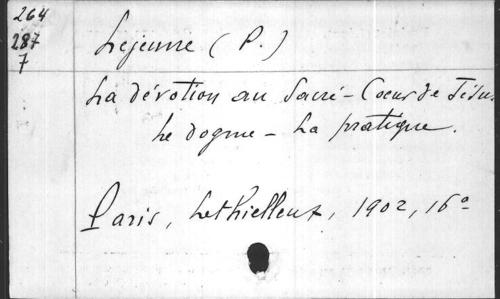 264
287
7
Lejeune (P.)
La dévotion au Sacré-Coeur de Jésus
Le dogme - La pratique.
Paris, Lethielleux, 1902, 16°